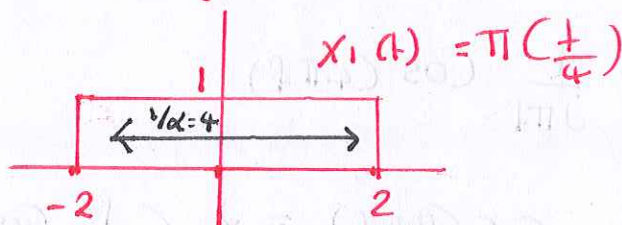 x₁(t) = Π(t/4)
1
1/α=4
-2 2